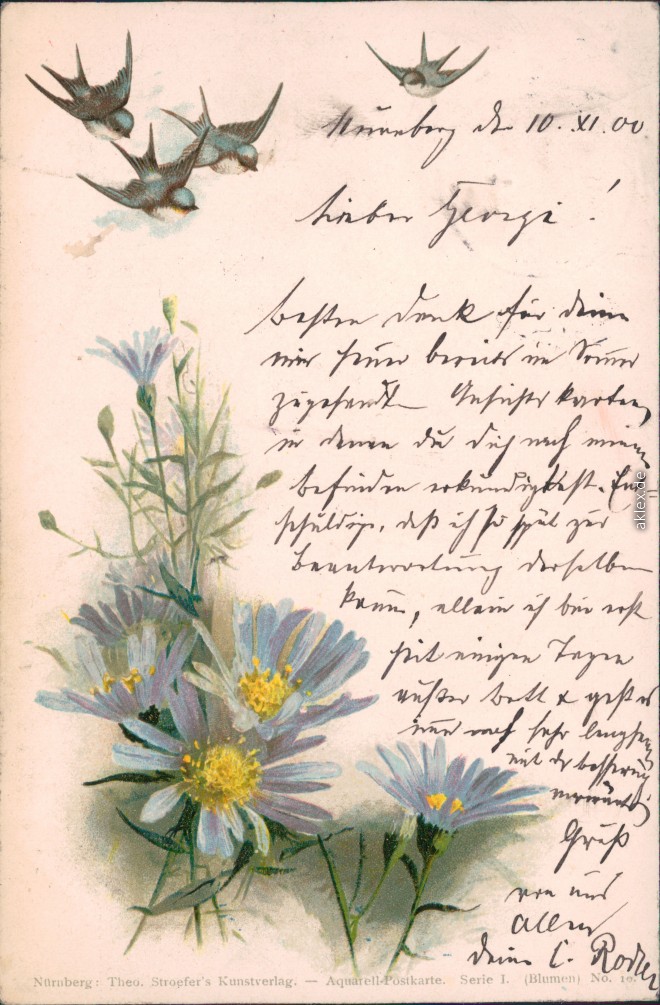 Nürnberg den 10. XI. 00
Lieber Georg!
besten Dank für deine
mir
bereits im Sommer
zugesandten Ansichtskarten,
in denen du dich nach meinem
befinden erkundigtest. Ent-
schuldige, daß ich so spät zur
Beantwortung derselben
komme, allein ich bin erst
seit einigen Tagen
außer bett & geht es
immer noch sehr langsam
mit der besserung
vorwärts.
Gruß
von uns
allen
dein C.
Nürnberg: Theo. Stroefer's Kunstverlag. — Aquarell-Postkarte. Serie I. (Blumen) No. 10.
aklex.de